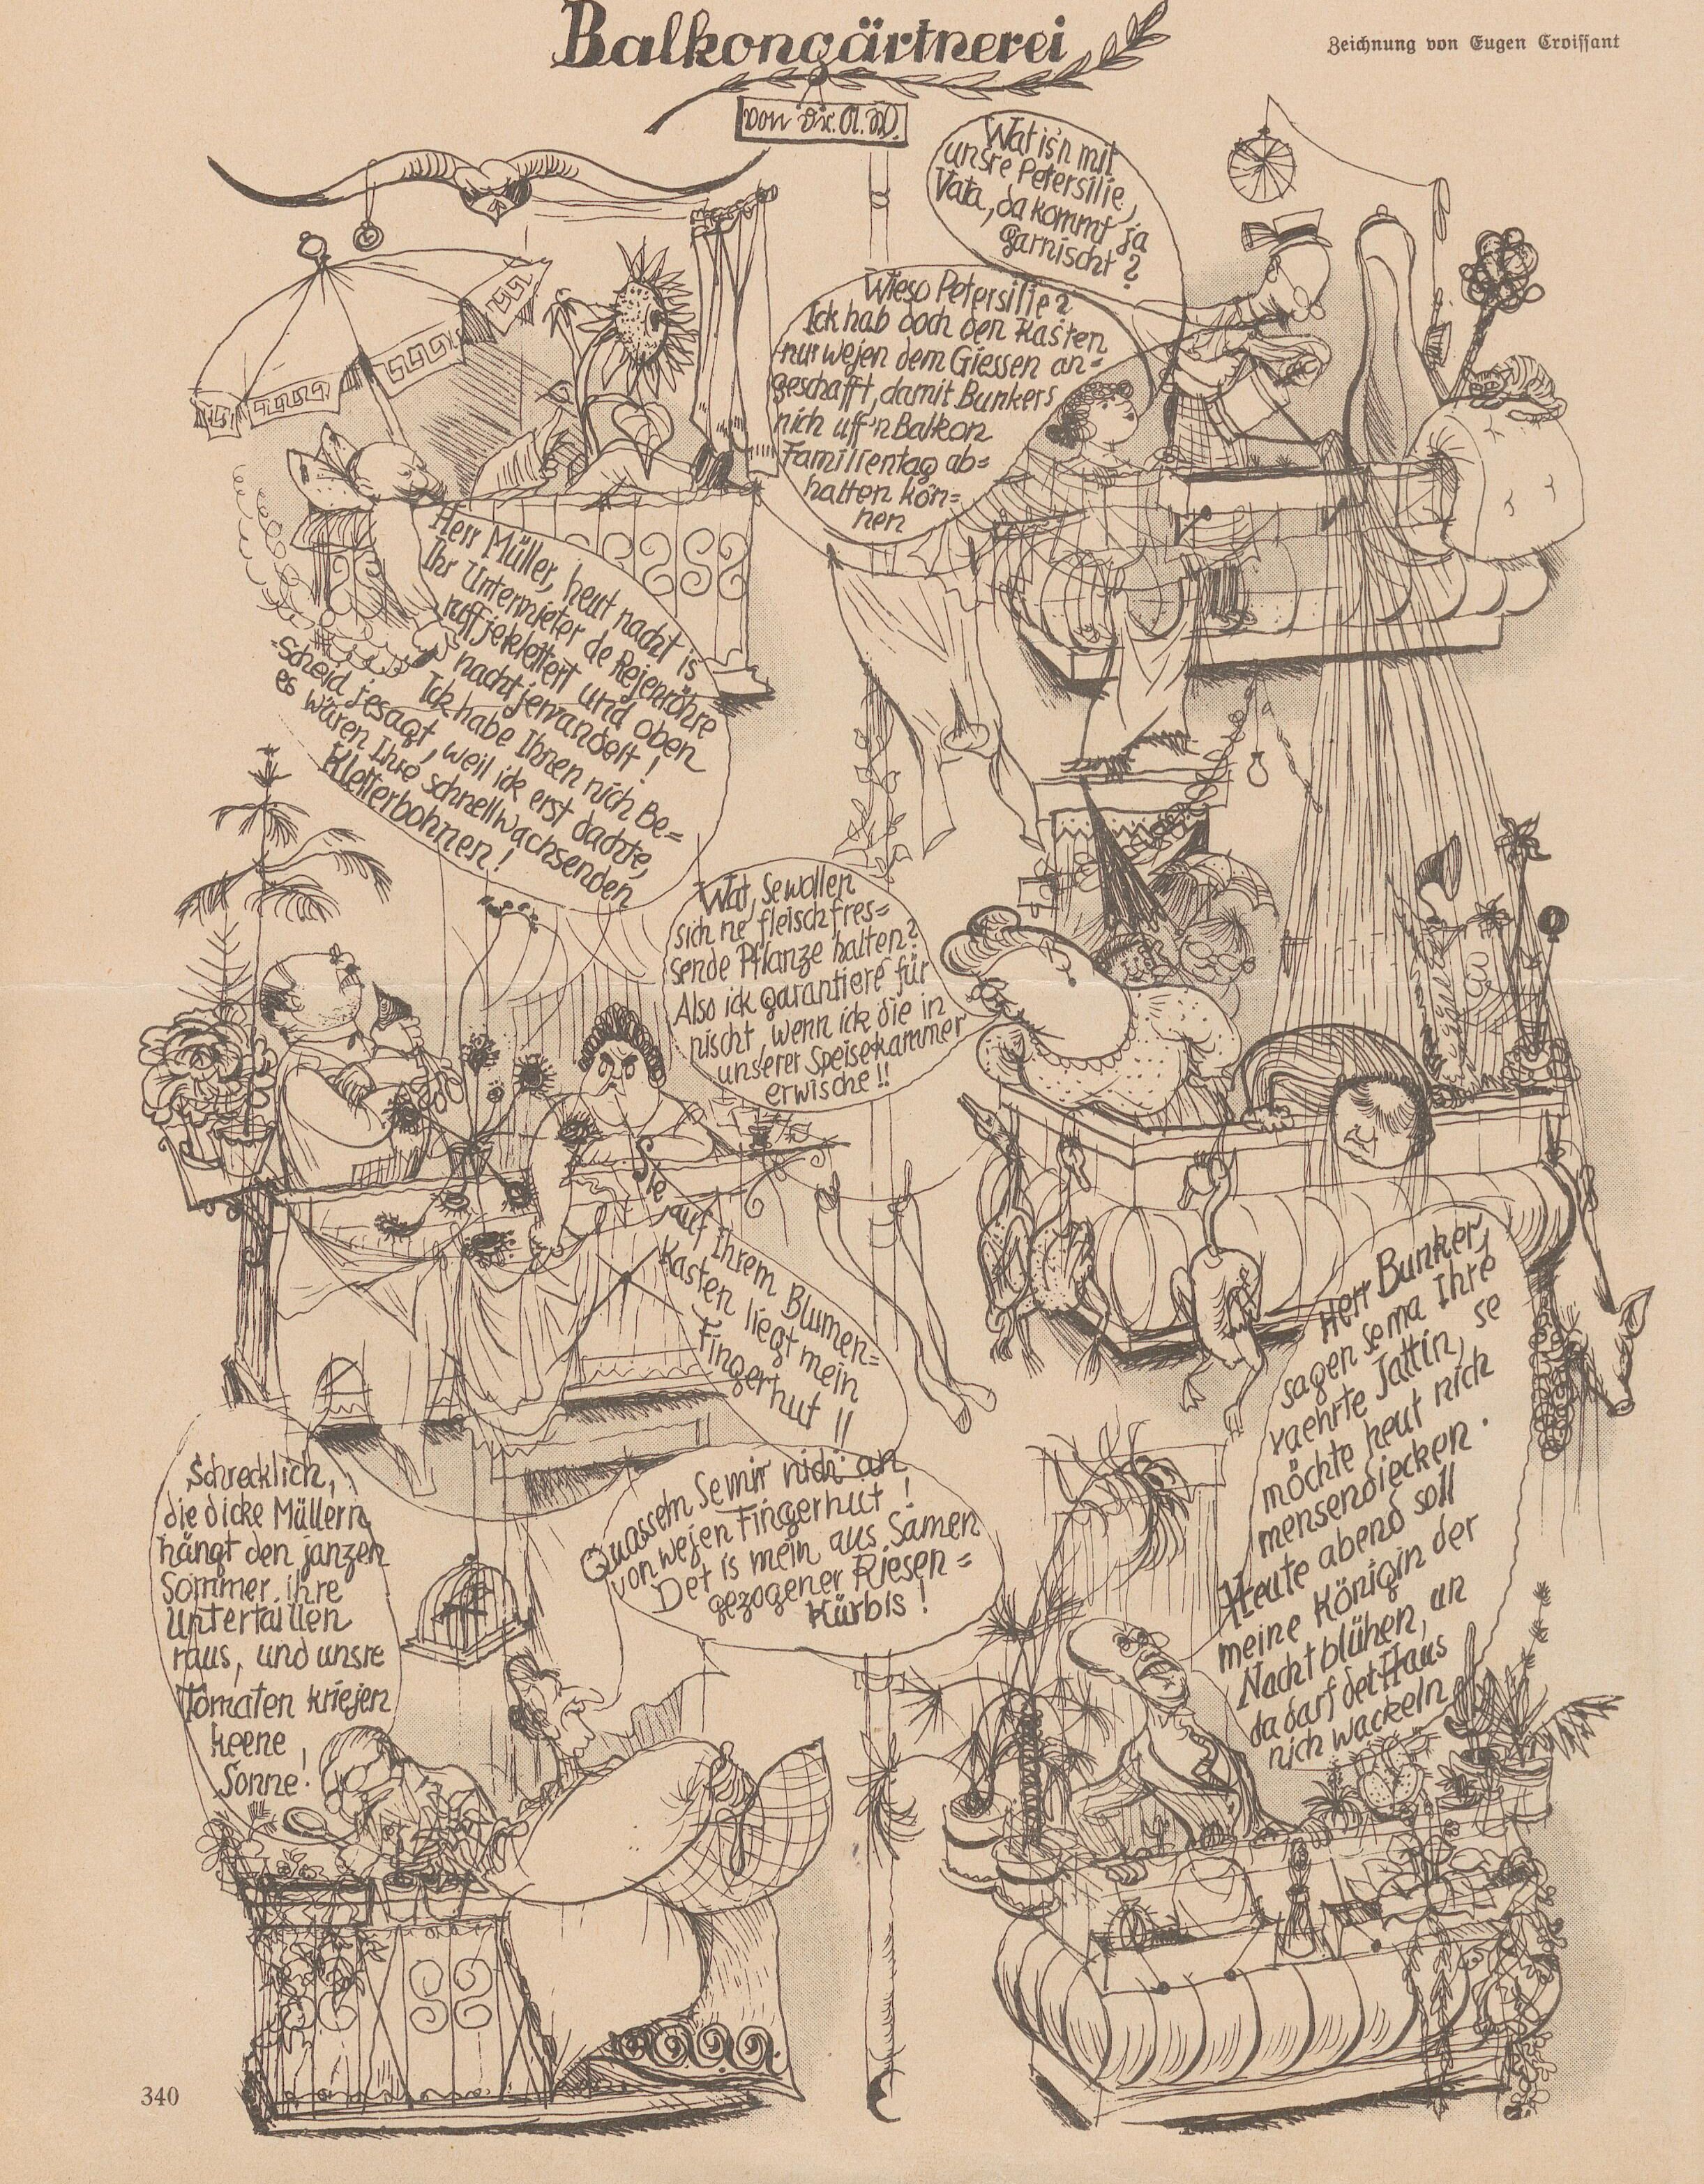 Balkongärtnerei
Zeichnung von Eugen Croissant
von Dr. A. W.
Wat is'n mit
unsre Petersilie,
Vata, da kommt ja
garnischt?
Wieso Petersilie?
Ick hab doch den Kasten
nur wejen dem Giessen an=
geschafft, damit Bunkers
nich uff'n Balkon
Familientag ab=
halten kön=
nen
Herr Müller, heut nacht is
Ihr Untermieter de Rejenröhre
ruffjeklettert und oben
nachtjewandelt!
Ick habe Ihnen nich Be=
scheid jesagt, weil ick erst dachte,
es wären Ihre schnellwachsenden
Kletterbohnen!
Wat, Se wollen
sich ne fleischfres=
sende Pflanze halten?
Also ick garantiere für
nischt, wenn ick die in
unserer Speisekammer
erwische!!
Sie,
auf Ihrem Blumen=
kasten liegt mein
Fingerhut!!
Herr Bunker,
sagen Se ma Ihre
vaehrte Jattin, se
möchte heut nich
mensendiecken.
Heute abend soll
meine Königin der
Nacht blühen, an
da darf det Haus
nich wackeln
Schrecklich,
die dicke Müllern
hängt den janzen
Sommer ihre
Untertaillen
raus, und unsre
Tomaten kriejen
keene
Sonne!
Quasseln Se mir nich an
von wejen Fingerhut!
Det is mein aus Samen
gezogener Riesen=
Kürbis!
340